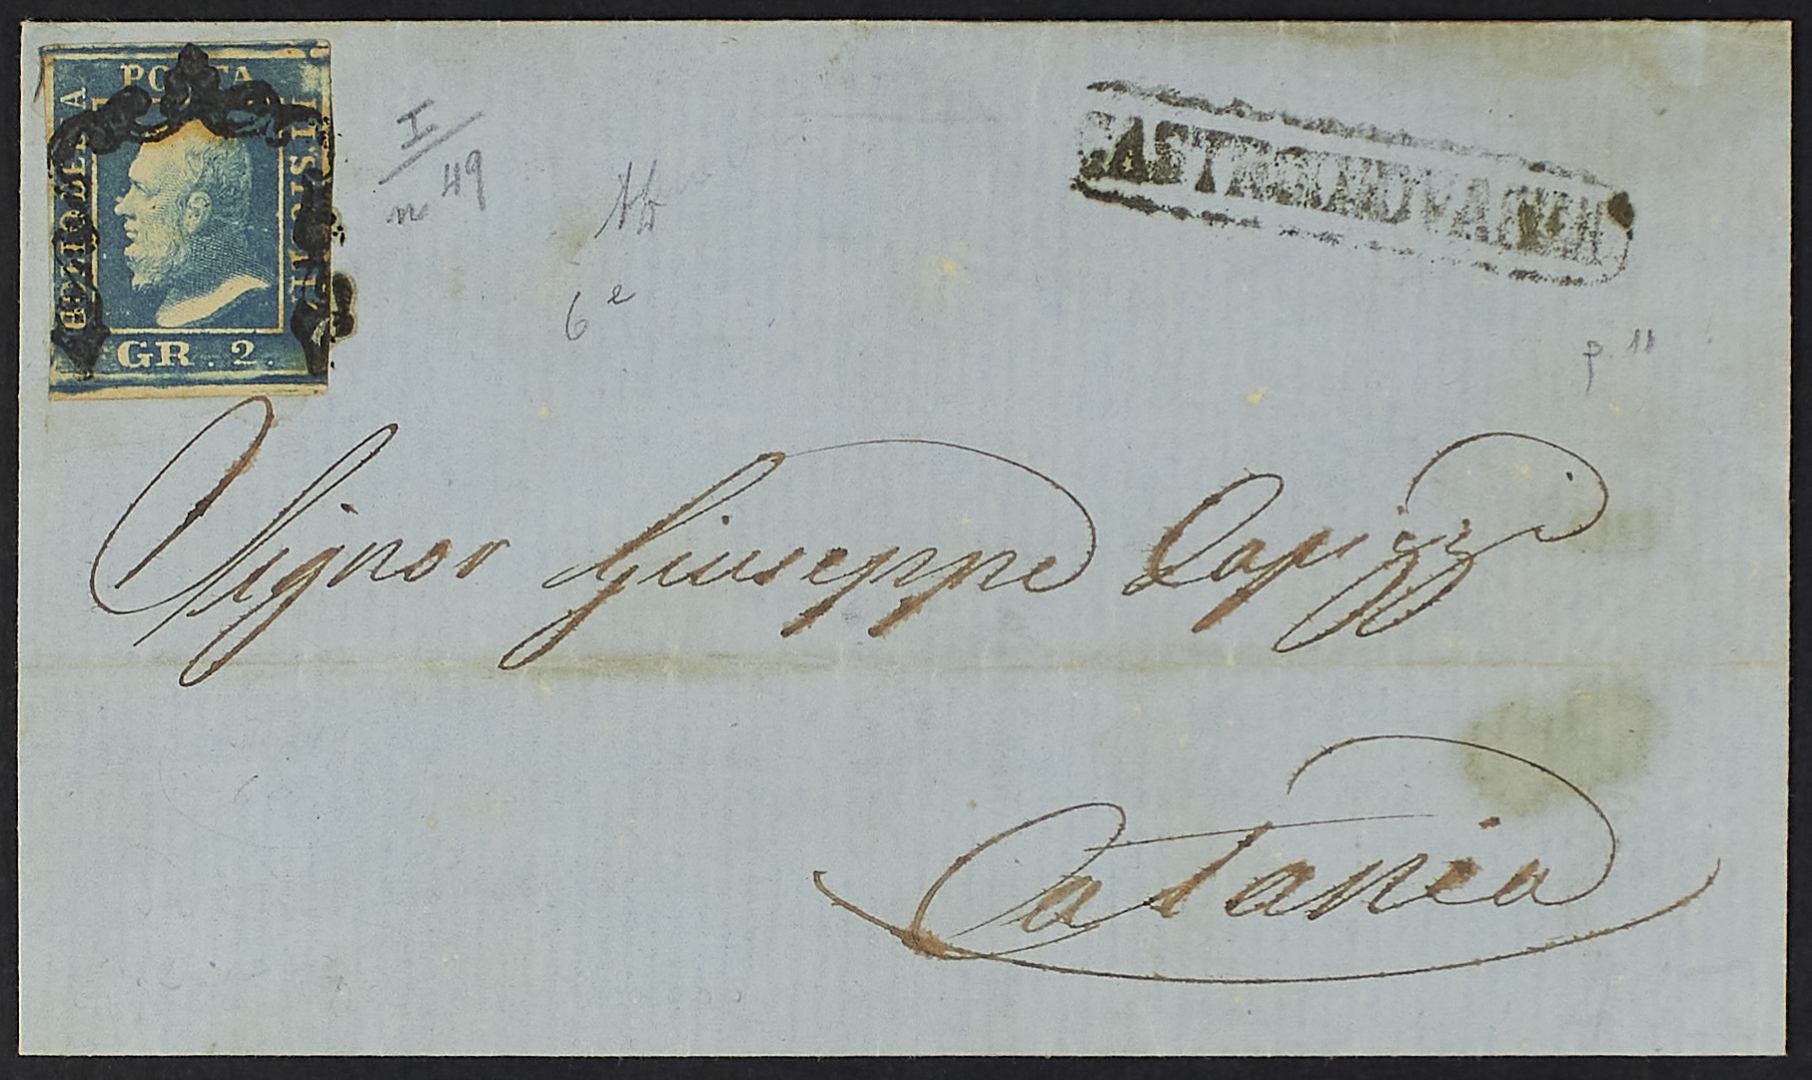 POSTA
BOLLO DELLA
DI SICILIA
GR. 2.
I
n 49
6 e
p. 11
CASTROGIOVANNI
Signor Giuseppe Capizzi
Catania